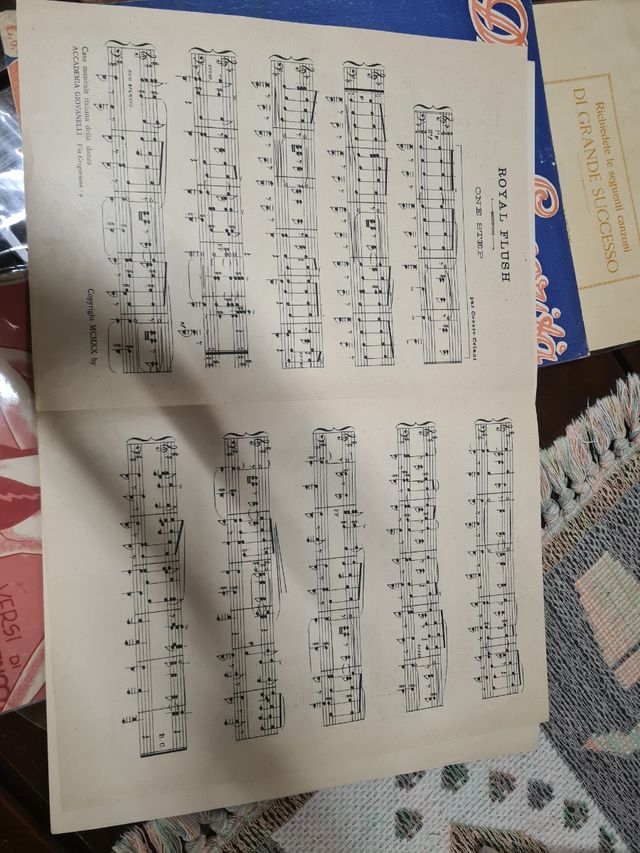 ROYAL FLUSH
ONE STEP
par Cesare Celani
Casa musicale italiana della danza
ACCADEMIA GIOVANELLI Via Gregoriana - 9
Copyright MCMXX by
D. C.
Richiedete le seguenti canzoni
DI GRANDE SUCCESSO
VERSI DI